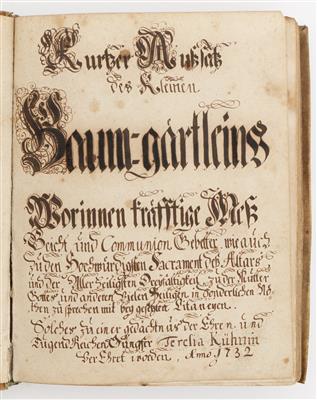 Kurtzer Außsatz
des Kleinen
Baum=gärtleins
Worinnen kräfftige Meß
Beicht und Communion Gebetter, wie auch
zu den Hochwürdigsten Sacrament deß Altars
und der Aller Heiligsten Dreyfaltigkeit, zu der Mutter
Gottes und anderen Vielen Heiligen in sonderlichen Nö
then zu sprechen mit bey gesetzten Litaneyen.
Solches zu einer gedächtnus der Ehren und
Tugend Reichen Jungfer Teresia
Ver Ehret worden, Anno 1732